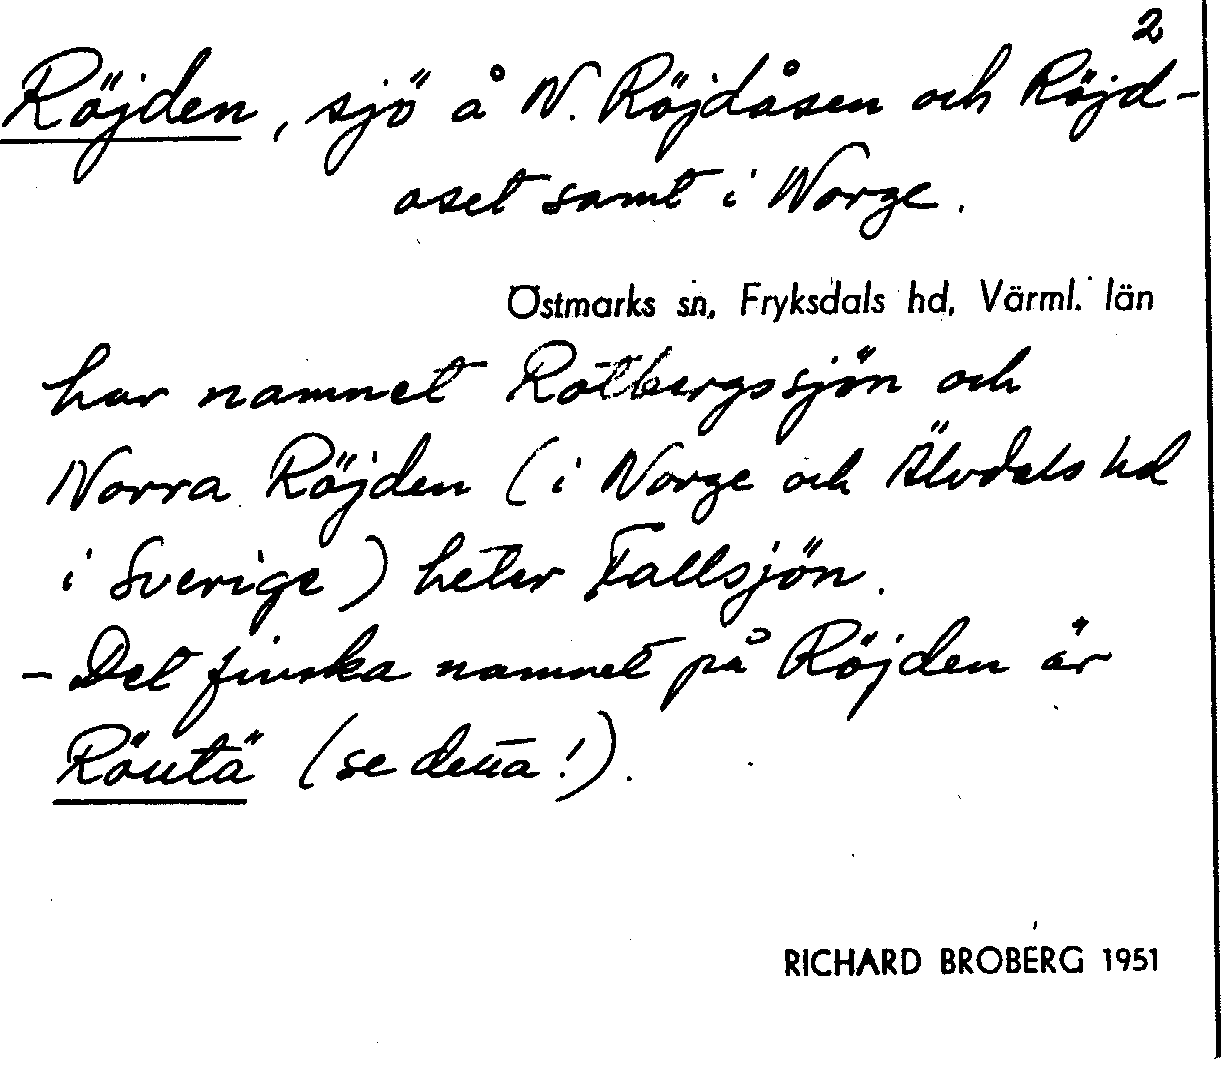 2
Röjden, sjö å N. Röjdåsen och Röjd-
oset samt i Norge.
Östmarks sn, Fryksdals hd, Värml. län
har namnet Rotbergssjön och
Norra Röjden (i Norge och Älvdals hd
i Sverige) heter Fallsjön.
- Det finska namnet på Röjden är
Röutä (se detta!).
RICHARD BROBERG 1951